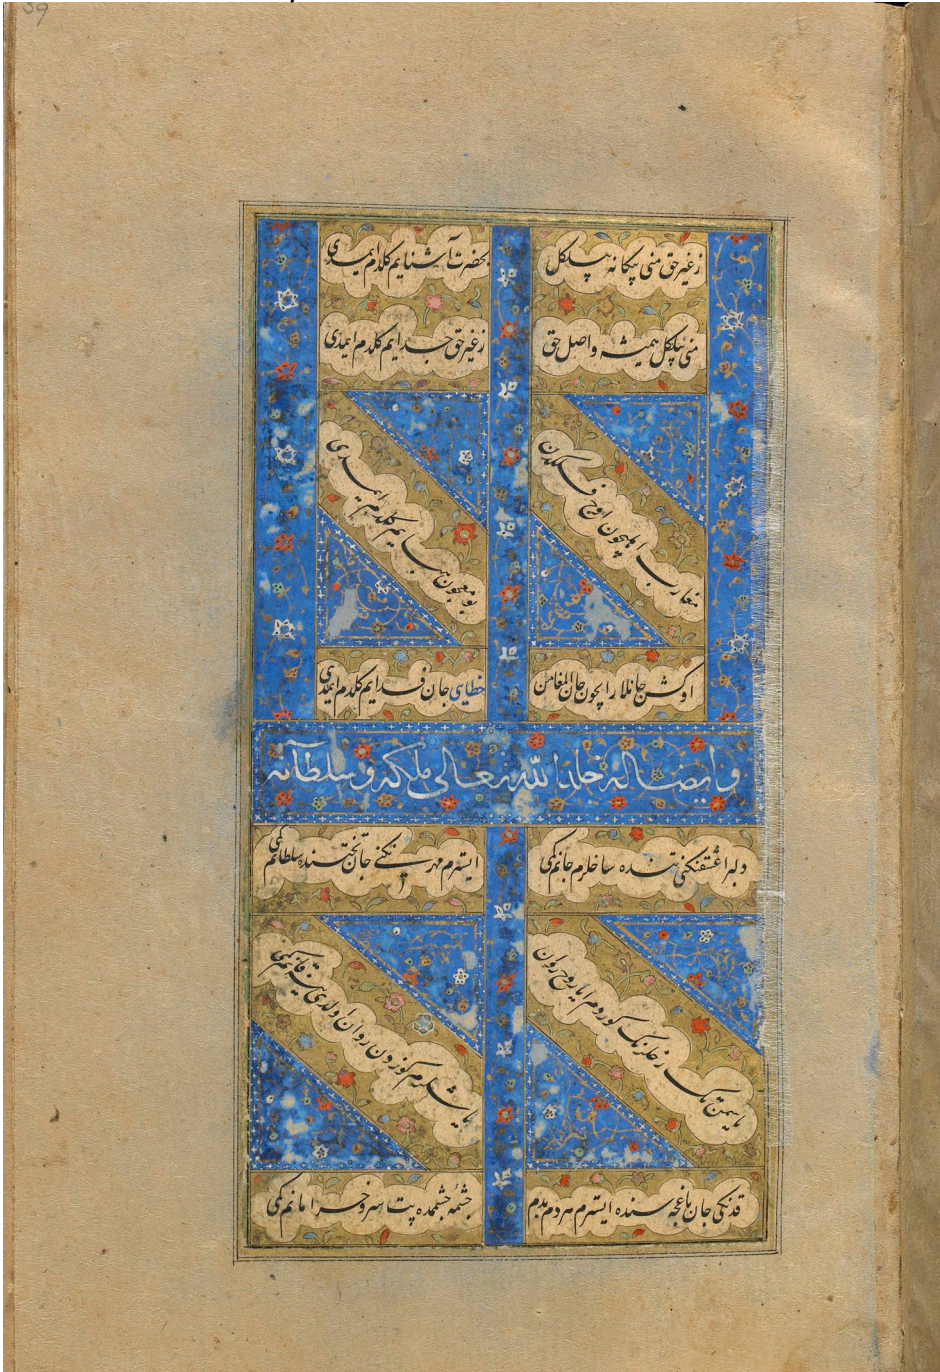 59
زغیر حق منی بیکانه بیلکل
بحضرت آشنایم کلدم ایمدی
منی بیلکل همیشه واصل حق
زغیر حق جدایم کلدم ایمدی
مغارب ایله بچون اوج فلکدن
بو معجون همایم کلدم ایمدی
اوکش جانلار ایچون جان
خطایی جان فدایم کلدم ایمدی
و ایضا له خلد الله تعالی ملکه و سلطانه
دلبرا عشقنکنی تنده ساخلرم جانم کمی
ایسترم مهرنکنی جان تختنده سلطانم کمی
زخلرنک کوردم ایا روح روان
یاشلرم کوزدن روان اولدی قانم کمی
قدنکی جان باغچه سنده ایسترم هر دم بدم
چشمۀ چشمده بیت سرو خرامانم کمی